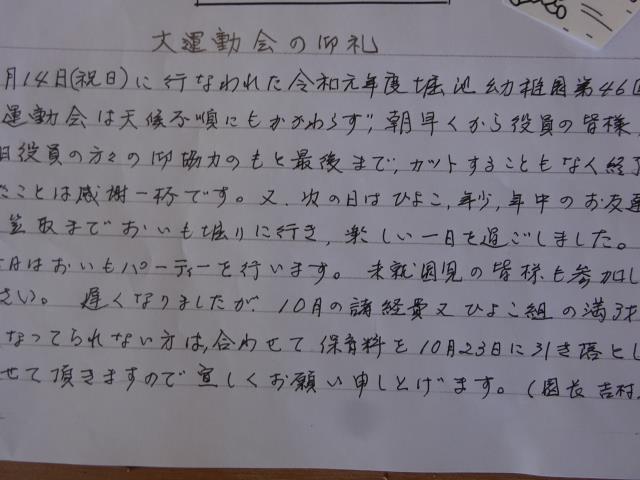 大運動会の御礼
月14日(祝日)に行なわれた令和元年度堀池幼稚園第46回
運動会は天候不順にもかかわらず、朝早くから役員の皆様、
役員の方々の御協力のもと最後まで、カットすることもなく終了
たことは感謝一杯です。又、次の日はひよこ、年少、年中のお友達
笠取までおいも堀りに行き、楽しい一日を過ごしました。
日はおいもパーティーを行います。未就園児の皆様も参加し
さい。遅くなりましたが、10月の諸経費又ひよこ組の満3才
なってられない方は、合わせて保育料を10月23日に引き落とし
せて頂きますので宜しくお願い申し上げます。(園長 吉村